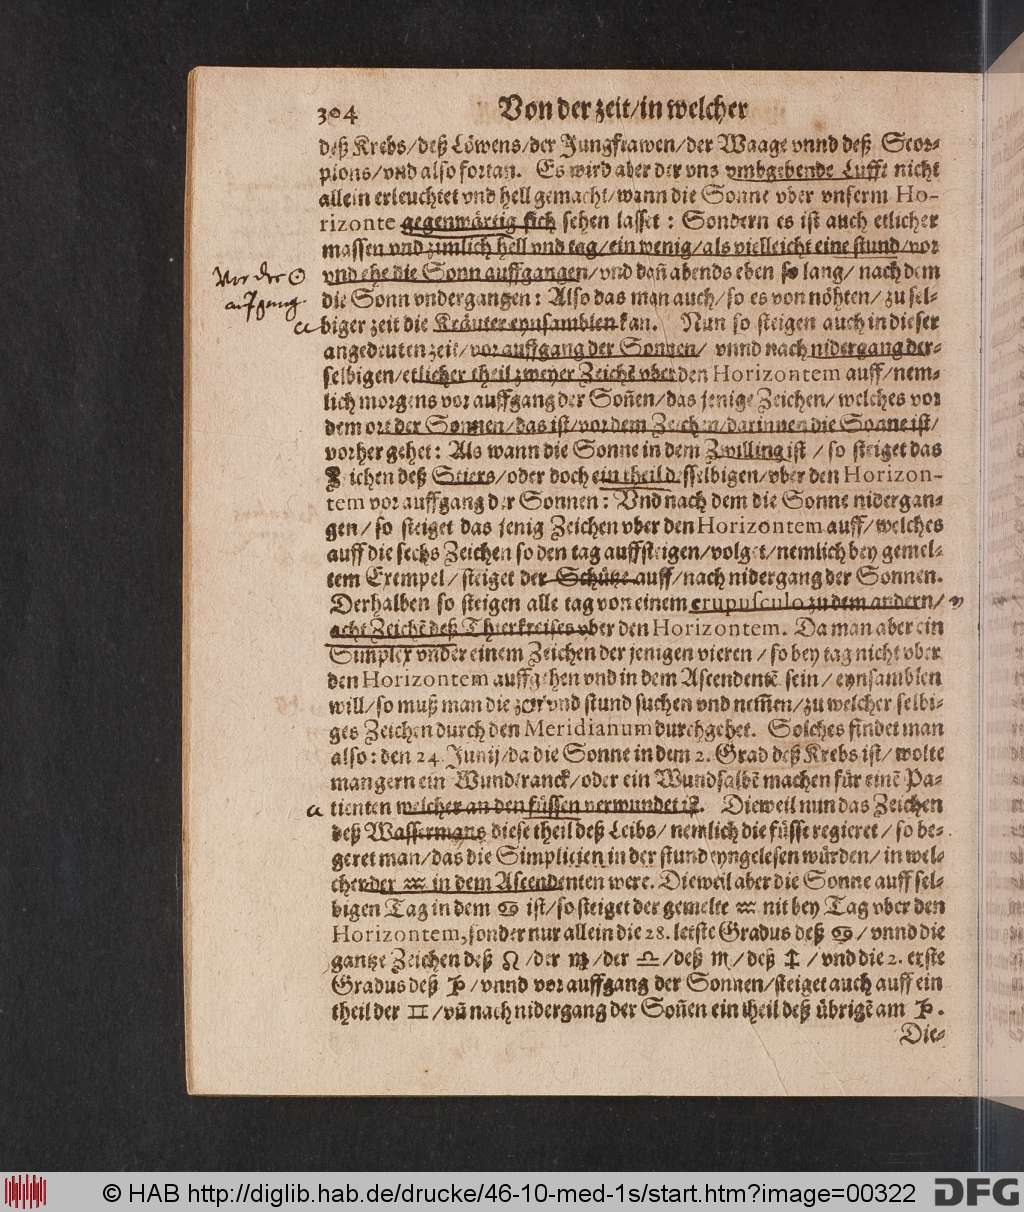 304 Von der zeit/in welcher
deß Krebs/deß Löwens/der Jungfrawen/der Waage vnnd deß Scor-
pions/vnd also fortan. Es wird aber der vns vmbgebende Lufft nicht
allein erleuchtet vnd hell gemacht/wann die Sonne vber vnserm Ho-
rizonte gegenwärtig sich sehen lasset: Sondern es ist auch etlicher
massen vnd zimlich hell vnd tag/ein wenig/als vielleicht eine stund/vor
vnd ehe die Sonn auffgangen/vnd dañ abends eben so lang/nach dem
Vor der ☉
aufgang
die Sonn vndergangen: Also das man auch/so es von nöhten/zu sel-
biger zeit die Kräuter eynsamblen kan. Nun so steigen auch in dieser
angedeuten zeit/vor auffgang der Sonnen/ vnnd nach nidergang der-
selbigen/etlicher theil zweyer Zeichẽ vber den Horizontem auff/nem-
lich morgens vor auffgang der Soñen/das jenige Zeichen/welches vor
dem ort der Sonnen/das ist/vor dem Zeichen/darinnen die Sonne ist/
vorher gehet: Als wann die Sonne in dem Zwilling ist/so steiget das
Zeichen deß Stiers/oder doch ein theil desselbigen/vber den Horizon-
tem vor auffgang der Sonnen: Vnd nach dem die Sonne nidergan-
gen/so steiget das jenig Zeichen vber den Horizontem auff/welches
auff die sechs Zeichen so den tag auffsteigen/volget/nemlich bey gemel-
tem Exempel/steiget der Schütze auff/nach nidergang der Sonnen.
Derhalben so steigen alle tag von einem crupusculo zu dem andern/
acht Zeichẽ deß Thierkreises vber den Horizontem. Da man aber ein
Simplex vnder einem Zeichen der jenigen vieren/so bey tag nicht vber
den Horizontem auffgehen vnd in dem Ascendentẽ sein/eynsamblen
will/so muß man die zeit vnd stund suchen vnd nemẽn/zu welcher selbi-
ges Zeichen durch den Meridianum durchgehet. Solches findet man
also: den 24. Junij/da die Sonne in dem 2. Grad deß Krebs ist/wolte
man gern ein Wundtranck/oder ein Wundsalbẽ machen für einẽ Pa-
tienten welcher an den füssen verwundet ist. Dieweil nun das Zeichen
deß Wassermans diese theil deß Leibs/nemlich die füsse regieret/so be-
geret man/das die Simplicien in der stund eyngelesen würden/in wel-
cher der ♒ in dem Ascendenten were. Dieweil aber die Sonne auff sel-
bigen Tag in dem ♋ ist/so steiget der gemelte ♒ nit bey Tag vber den
Horizontem, sonder nur allein die 28. letste Gradus deß ♋/vnnd die
gantze Zeichen deß ♌/der ♍/der ♎/deß ♏/deß ♐/vnd die 2. erste
Gradus deß ♑/vnnd vor auffgang der Sonnen/steiget auch auff ein
theil der ♊/vñ nach nidergang der Soñen ein theil deß übrigẽ am ♑.
Die-
© HAB http://diglib.hab.de/drucke/46-10-med-1s/start.htm?image=00322 DFG